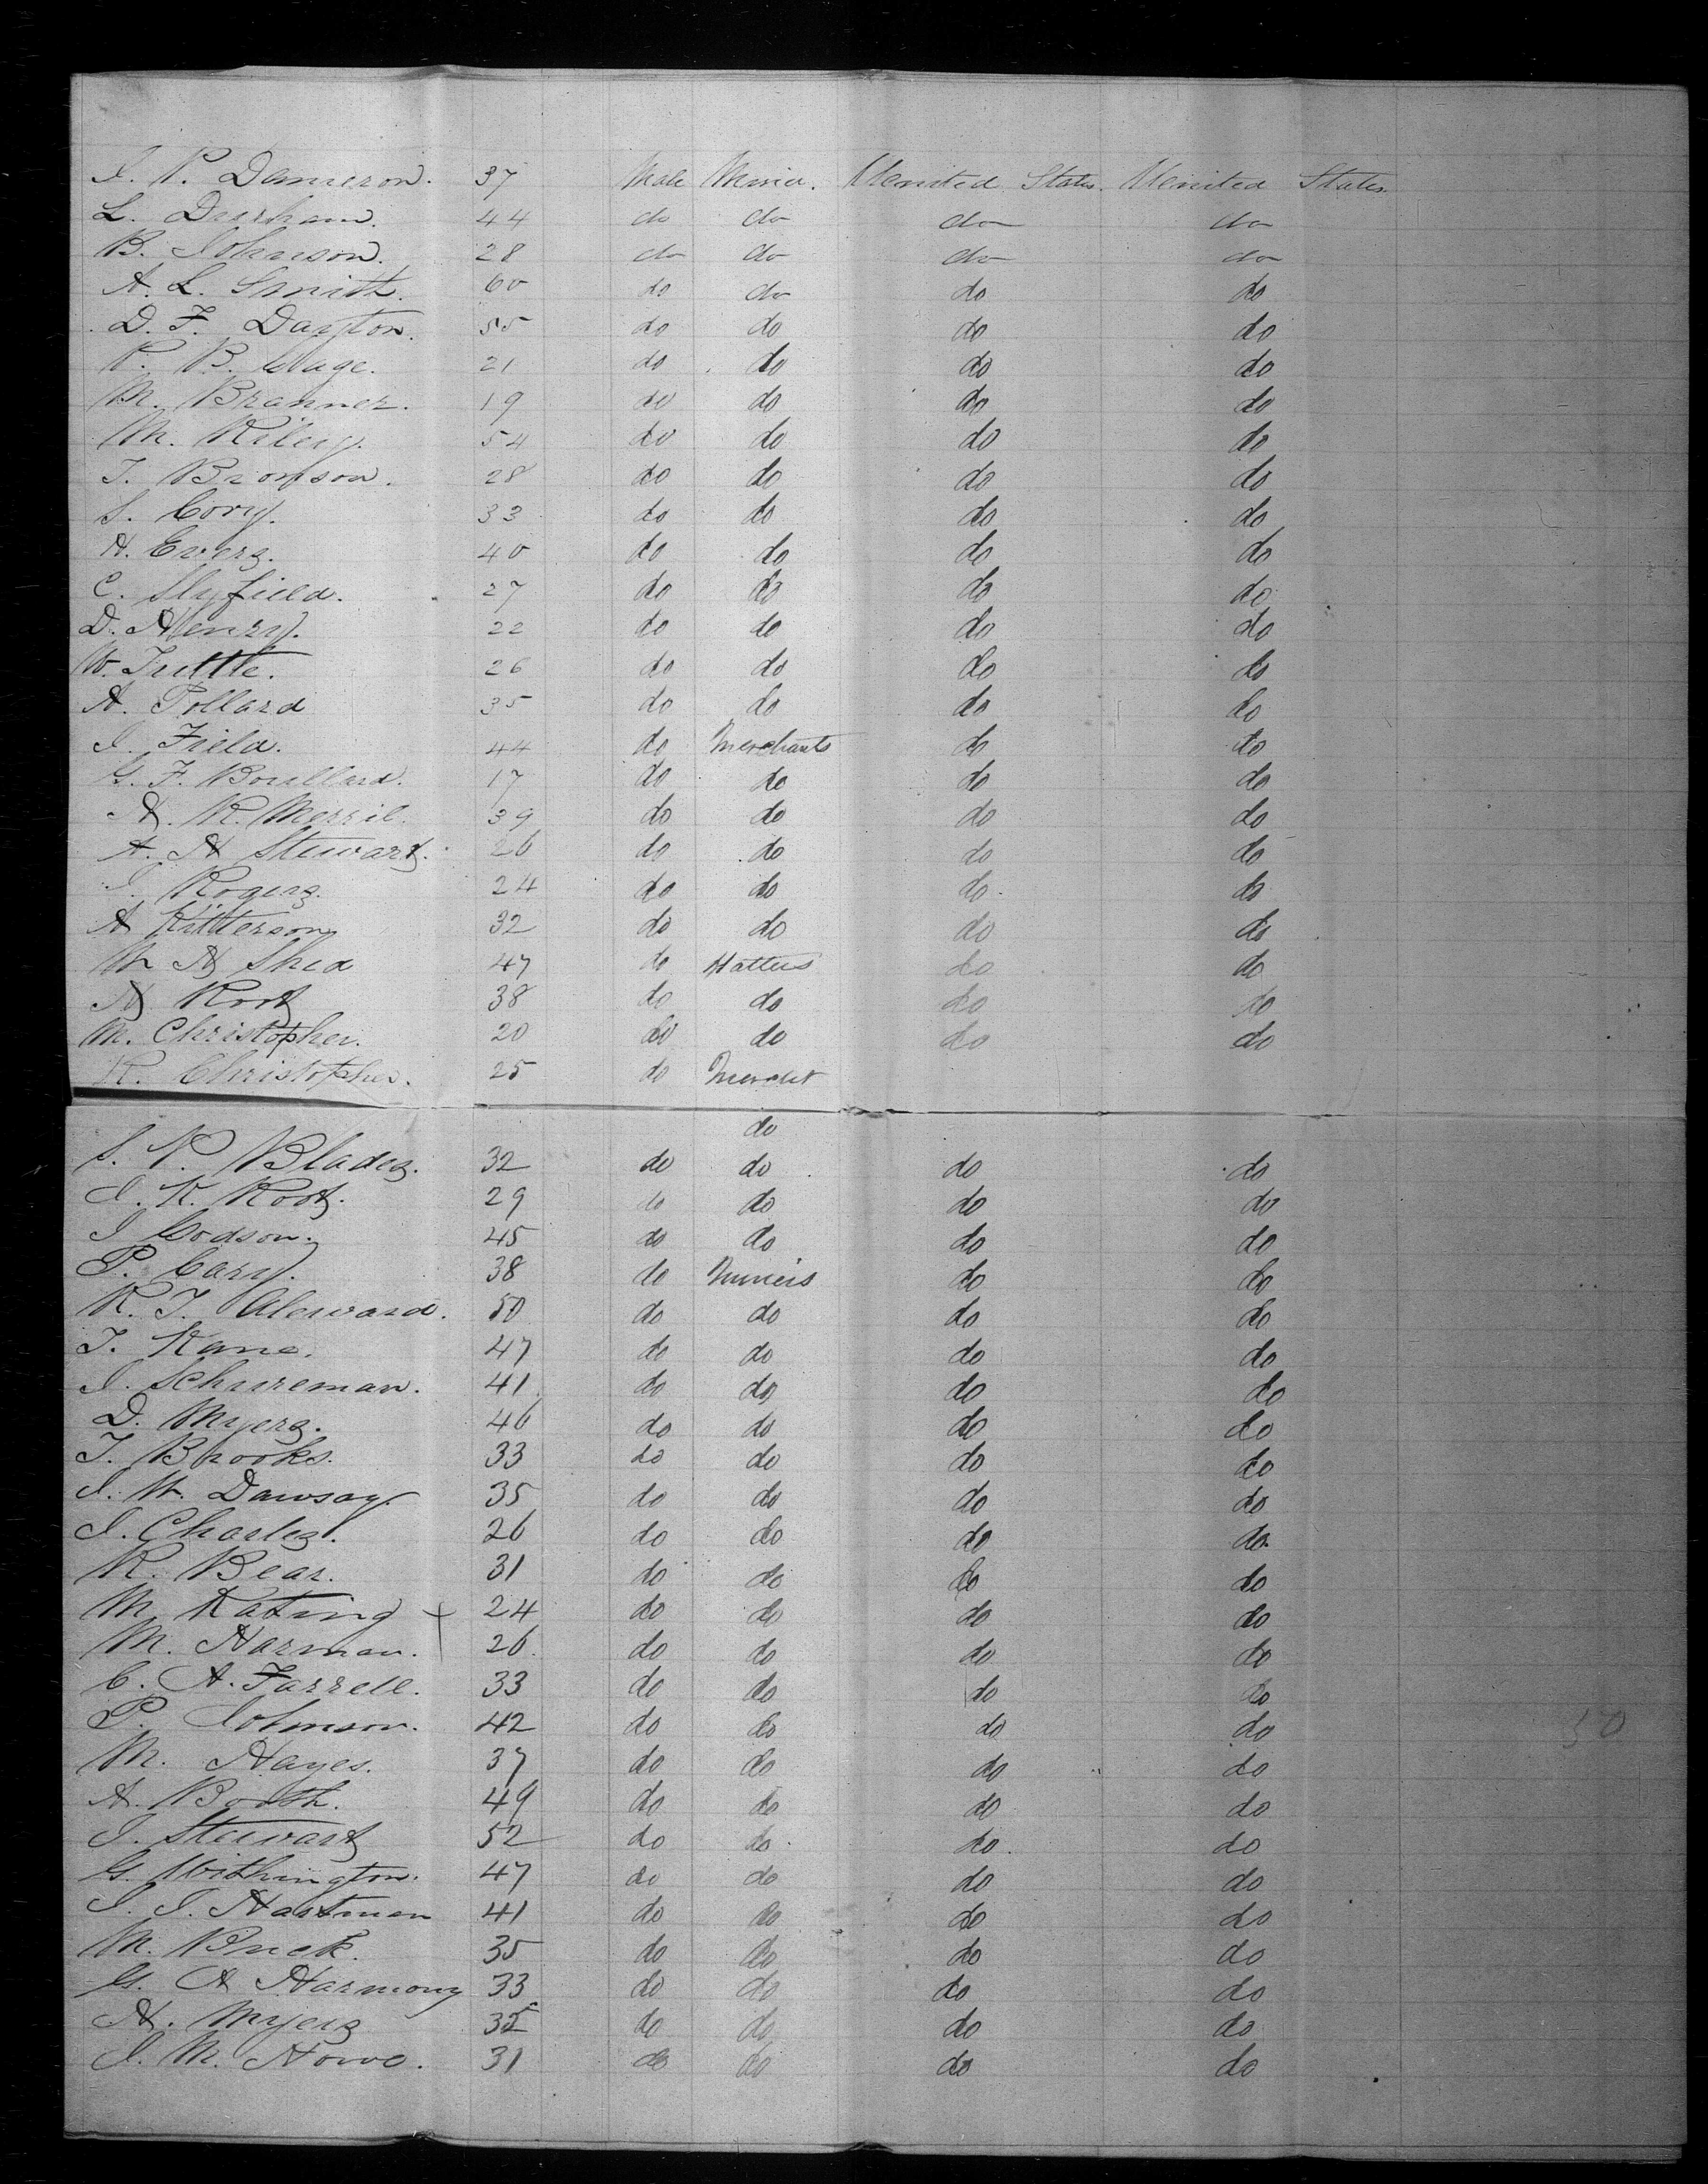 J. P. Dameron. 37 Male Miner. United States. United States.
L. Durham. 44 do do do do
B. Johnson. 28 do do do do
A. L. Smith. 60 do do do do
D. F. Dayton. 55 do do do do
P. B. Cage. 21 do do do do
M. Branner. 19 do do do do
M. Riley. 54 do do do do
T. Bronson. 28 do do do do
S. Cory. 33 do do do do
H. Evers. 40 do do do do
C. Slyfield. 27 do do do do
D. Henry. 22 do do do do
W. Tuttle. 26 do do do do
A. Pollard 35 do do do do
J. Field. 44 do Merchants do do
G. F. Boullard. 17 do do do do
N. R. Merril. 39 do do do do
A. H Stewart. 26 do do do do
J. Rogers. 24 do do do do
A Kitterson 32 do do do do
M H Shed 47 do Hatters do do
H Root 38 do do do do
M. Christopher. 20 do do do do
R. Christopher. 25 do
do
S. P. Blades. 32 do do do do
J. K. Root. 29 do do do do
J Codson. 45 do do do do
P. Cary. 38 do do do
R. T. Aleward. 50 do do do do
T. Kane. 47 do do do do
J. Schureman. 41 do do do do
D. Myers. 46 do do do do
T. Brooks. 33 do do do do
J. W. Dawsay. 35 do do do do
J. Charles. 26 do do do do
R. Bear. 31 do do do do
M Kating 24 do do do do
M. Harman. 26. do do do do
C. A. Farrell. 33 do do do do
P. Johnson. 42 do do do do
M. Hayes. 37 do do do do
A. Booth. 49 do do do do
J. Stewart 52 do do do do
G. Withington. 47 do do do do
J. J. Hartman 41 do do do do
M. Buck. 35 do do do do
G. A Harmony 33 do do do do
H. Myers 35 do do do do
J. M. Howe. 31 do do do do
50